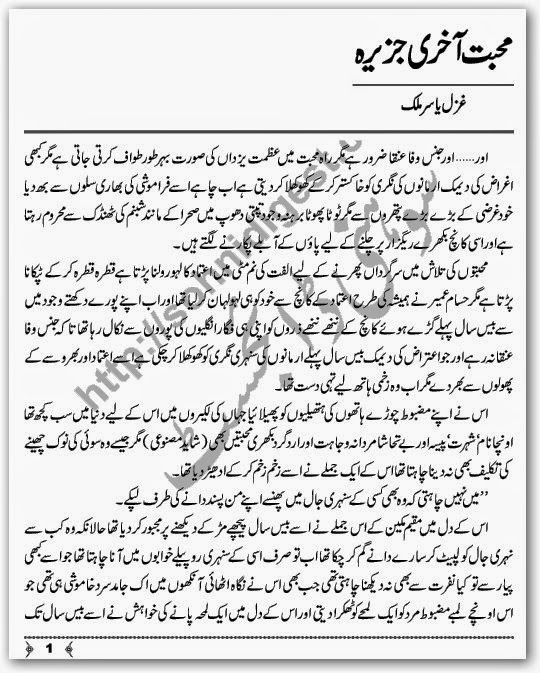 محبت آخری جزیرہ
غزل یاسر ملک
اور...... اور جنس وفا عنقا ضرور ہے مگر راہ محبت میں عظمت یزداں کی صورت بہر طور طواف کرتی جاتی ہے مگر کبھی
اغراض کی دیمک ارمانوں کی نگری کو خاکستر کر کے کھوکھلا کر دیتی ہے اب چاہے اسے فراموشی کی بھاری سلوں سے بھر دیا
خود غرضی کے بڑے بڑے پتھروں سے مگر ٹوٹا پھوٹا برہنہ وجود تپتی دھوپ میں صحرا کے مانند شبنم کی ٹھنڈک سے محروم رہتا
ہے اور اسی کانچ بکھرے ریگزار پر چلنے کے لیے پاؤں کے آبلے پکارنے لگتے ہیں۔
محبتوں کی تلاش میں سرگرداں پھرنے کے لیے الفت کی نم مٹی میں اعتماد کا لہو رولنا پڑتا ہے قطرہ قطرہ کر کے ٹپکانا
پڑتا ہے مگر حسام عمیر نے ہمیشہ کی طرح اعتماد کے کانچ سے خود کو ہی لہولہان کر لیا تھا اور اب اپنے پورے دکھتے وجود میں
سے بیس سال پہلے گڑے ہوئے کانچ کے ننھے ننھے ذروں کو اپنی ہی فگار انگلیوں کی پوروں سے نکال رہا تھا تا کہ جنس وفا
عنقا نہ رہے اور جو اعتراض کی دیمک بیس سال پہلے ارمانوں کی سنہری نگری کو کھوکھلا کر چکی ہے اسے اعتماد اور بھروسے کے
پھولوں سے بھر دے مگر اب وہ زخمی ہاتھ لیے تہی دست تھا۔
اس نے اپنے مضبوط چوڑے ہاتھوں کی ہتھیلیوں کو پھیلایا جہاں کی لکیروں میں اس کے لیے دنیا میں سب کچھ تھا
اونچا نام' شہرت' پیسہ اور بے تحاشا مردانہ وجاہت اور ارد گرد بکھری محبتیں بھی (شاید مصنوعی) مگر جیسے وہ سوئی کی نوک چھبنے
کی تکلیف بھی نہ دینا چاہتا تھا اس کے ایک جملے نے اسے زخم زخم کر کے ادھیڑ دیا تھا۔
’’میں نہیں چاہتی کہ وہ بھی کسی کے سنہری جال میں پھنسے اپنے من پسند دانے کی طرف لپکے۔
اس کے دل میں مقیم مکین کے اس جملے نے اسے بیس سال پیچھے مڑ کے دیکھنے پر مجبور کر دیا تھا حالانکہ وہ کب سے
نہری جال کو لپیٹ کر سارے دانے گم کر چکا تھا اب تو صرف اسی کے سنہری روپہلے خوابوں میں آنا چاہتا تھا جو اسے بھی
پیار سے تو کیا نفرت سے بھی نہ دیکھنا چاہتی تھی جب بھی اس نے نگاہ اٹھائی آنکھوں میں اک جامد سرد خاموشی ہی تھی جو
اس اونچے لمبے مضبوط مرد کو ایک لمحے کو ٹھکرا دیتی اور اس کے دل میں ایک لمحہ پانے کی خواہش نے اسے بیس سال تک
1
http://sohnidigest.c
سوہنی ڈائجسٹ